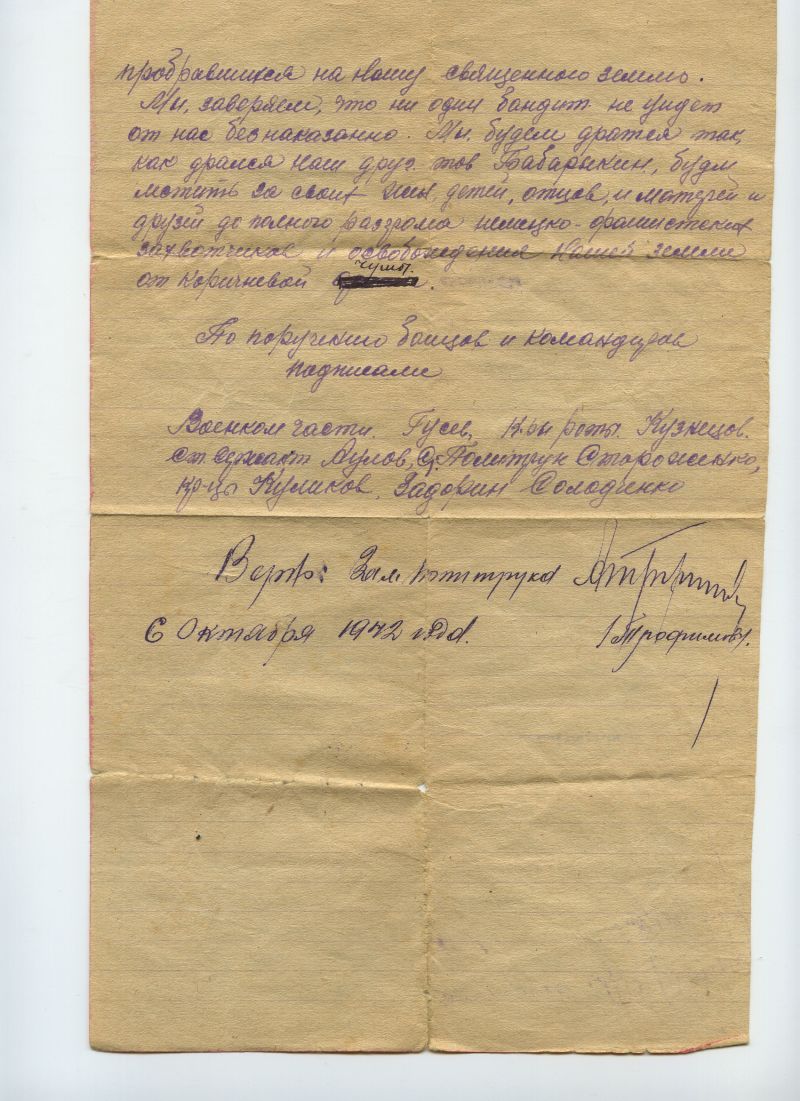 пробравшихся на нашу священного землю.
Мы, заверяем, что ни один бандит не уйдет
от нас безнаказанно. Мы. будем дратся так,
как дрался наш друг. тов Бабарыкин, будем
мстить за своих жён, детей, отцов, и матерей и
друзей до полного разгрома немецко-фашистских
захватчиков и освобождения нашей земли
от коричневой чумы.
По поручению бойцов и командиров
подписали
Военком части. Гусев, к-ры роты. Кузнецов.
Ст Сержант Аулов, Политрук Стороженко,
кр-цы Куликов, Задорин Солодченко
Верно: Зам политрука
6 Октября 1942 года. /Трофимов/.